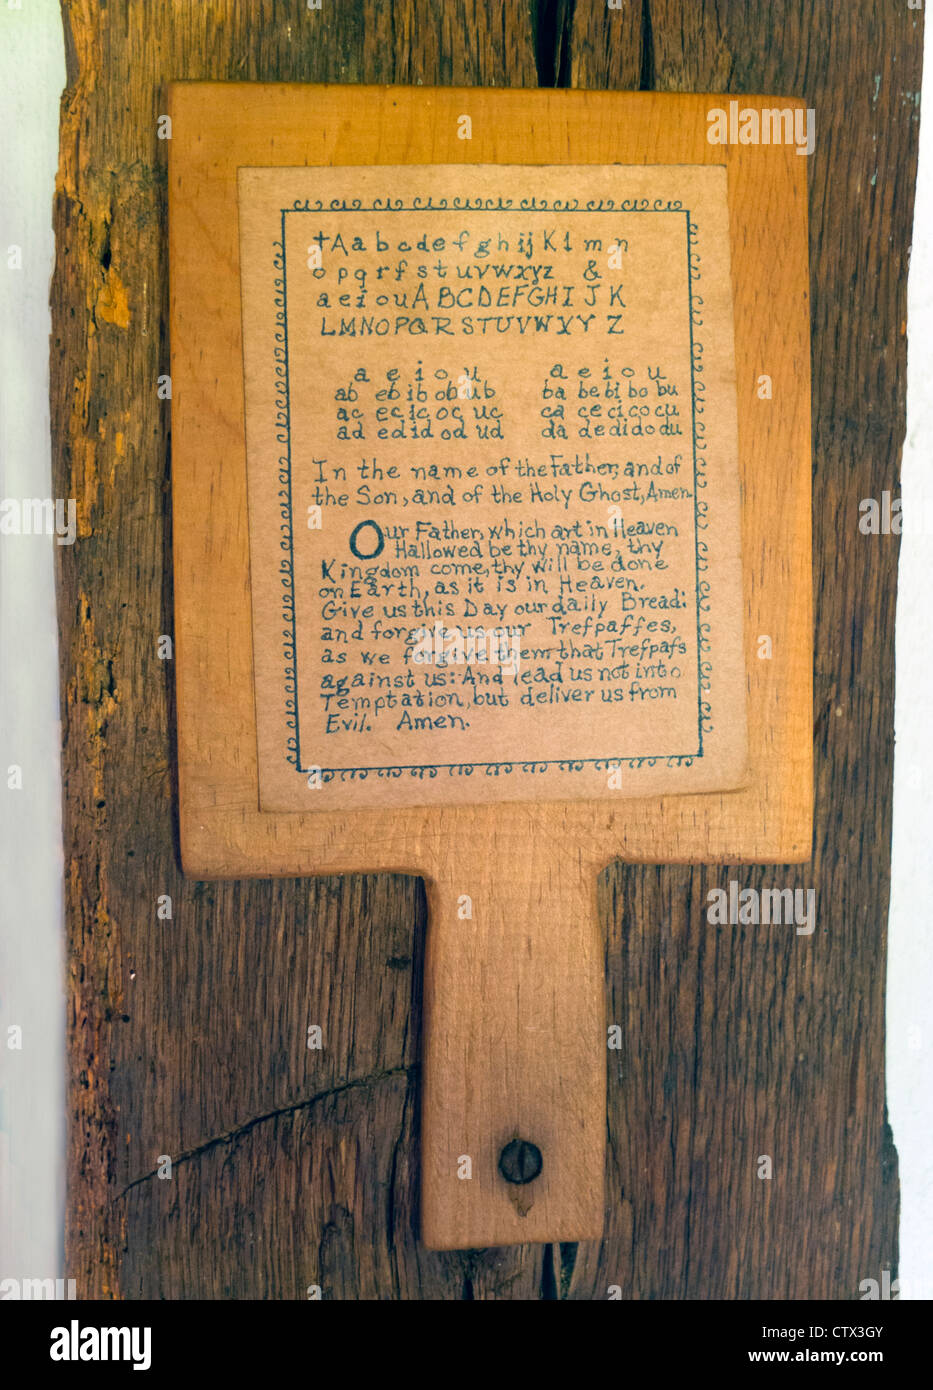 +Aabcdefghijklmn
opqrſstuvwxyz &
aeiouABCDEFGHIJK
LMNOPQRSTUVWXYZ
a e i o u a e i o u
ab eb ib ob ub ba be bi bo bu
ac ec ic oc uc ca ce ci co cu
ad ed id od ud da de di do du
In the name of the Father, and of
the Son, and of the Holy Ghost, Amen.
Our Father, which art in Heaven
Hallowed be thy name, thy
Kingdom come, thy will be done
on Earth, as it is in Heaven.
Give us this Day our daily Bread:
and forgive us our Treſpaſſes,
as we forgive them that Treſpaſs
against us: And lead us not into
Temptation, but deliver us from
Evil. Amen.
alamy
Image ID: CTX3GY
www.alamy.com